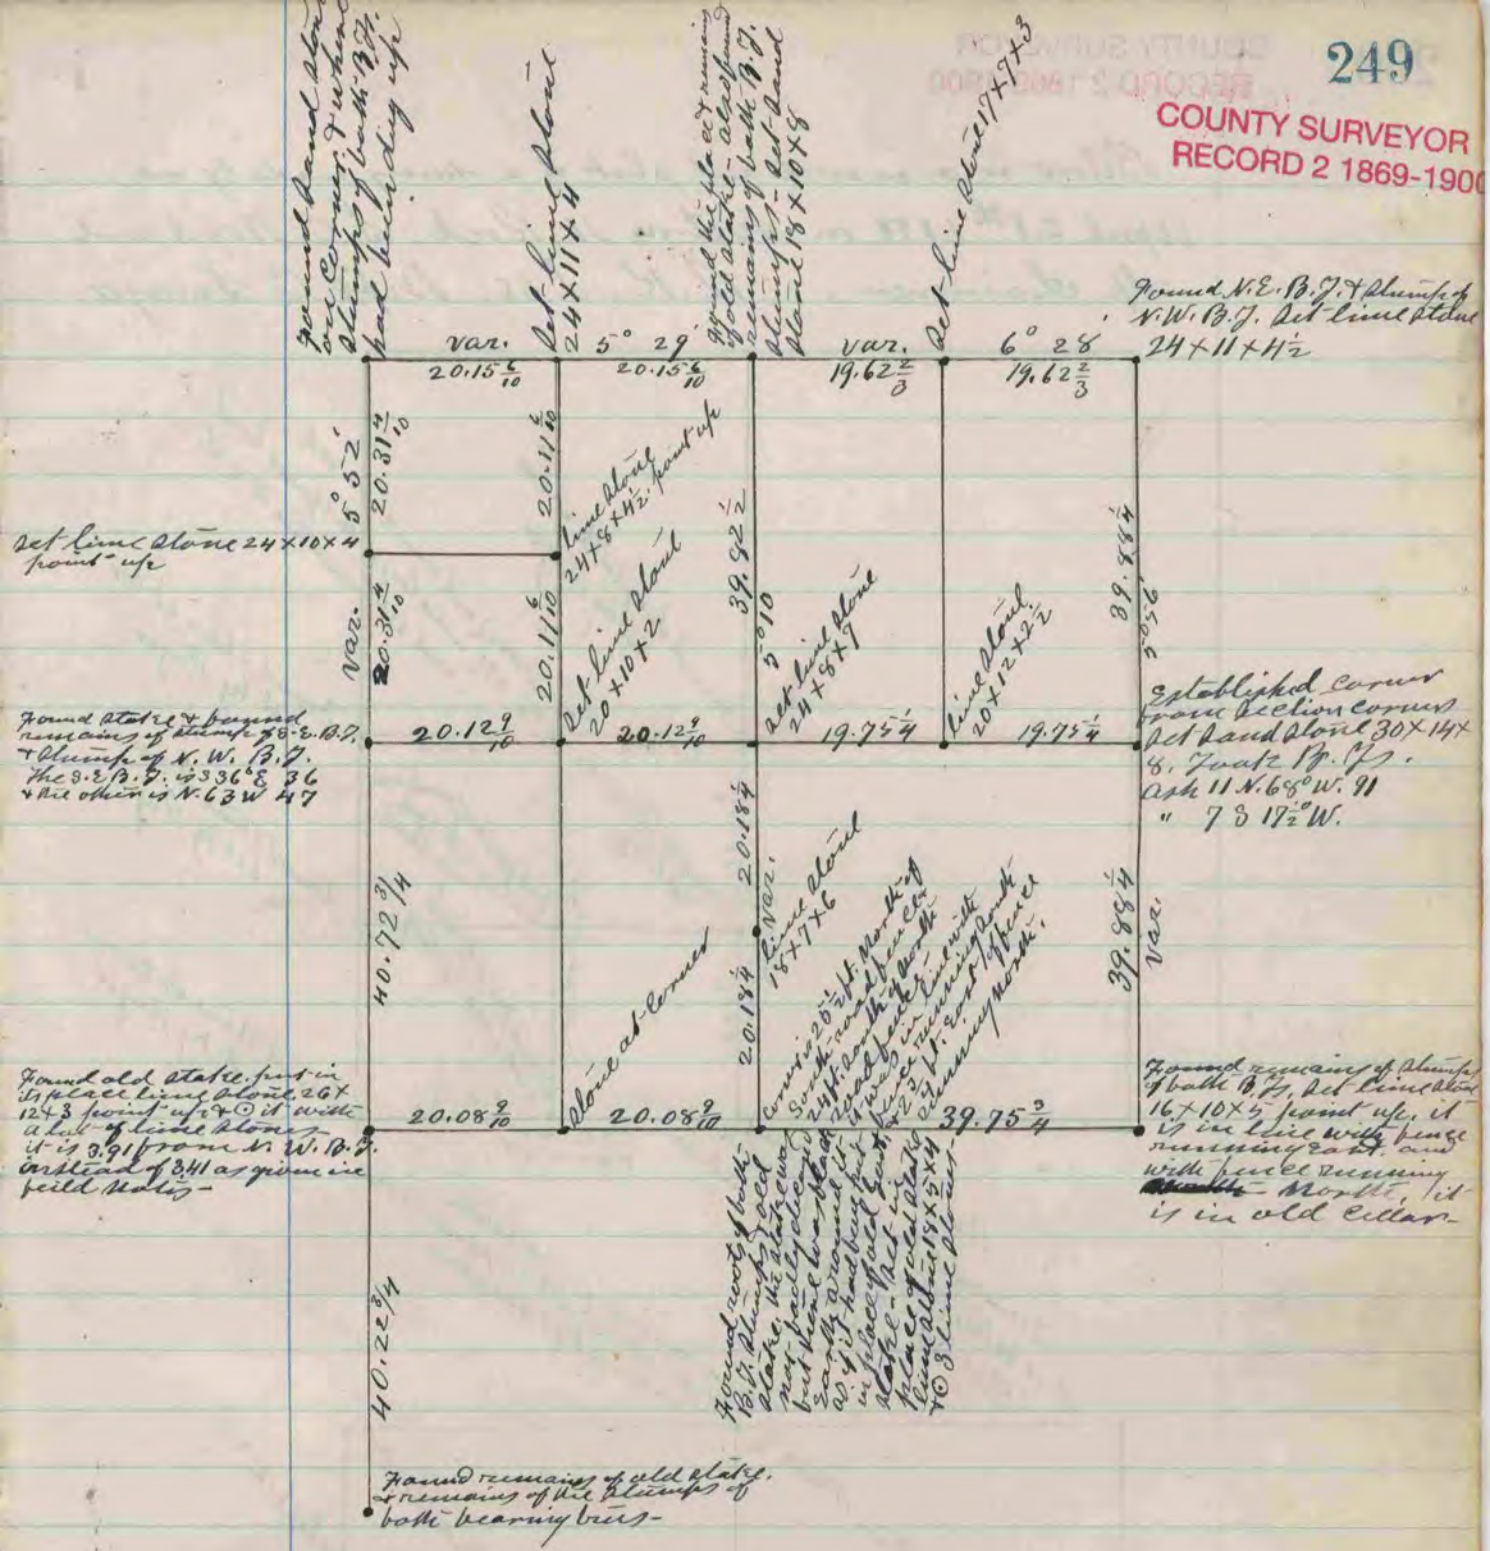 249
COUNTY SURVEYOR
RECORD 2 1869-1900
Found sand stone
at corner & where
stumps of both B.Ts.
had been dug up
Set lime stone
24 x 11 x 4
Found the place & remains
of old stake - also found
remains of both B.T.
stumps - set sand
stone 18 x 10 x 8
Set lime stone 17 x 7 x 3
Found N.E. B.T. & stump of
N.W. B.T. Set lime stone
24 x 11 x 4½
var. 5° 29' var. 6° 28
20.15 6/10 20.15 6/10 19.62 2/3 19.62 2/3
var. 5° 52'
20.31 4/10
20.11 6/10
39.82 ½
39.88 ¼
Set lime stone 24 x 10 x 4
point up
lime stone
24 x 8 x 4½ point up
20.31 4/10
20.11 6/10
5° 10
Set lime stone
20 x 10 x 2
Set lime stone
24 x 8 x 7
lime stone
20 x 12 x 2½
Found stake & found
remains of stump of S.E. B.T.
& stump of N.W. B.T.
The S.E B.T. is S 36° E 36
& the other is N. 63 W 47
20.12 9/10 20.12 9/10 19.75 ¼ 19.75 ¼
Established corner
from section corners
Set sand stone 30 x 14 x
8. Took B. Ts.
Ash 11 N. 68° W. 91
" 7 S 17½° W.
40.72 3/4
20.18 ¼
var.
20.18 ¼
lime stone
18 x 7 x 6
39.88 ¼
var.
Stone at corner
corner is 25½ ft. North of
South road fence &
24 ft. South of North
road fence -
it was in line with
fence running South
& 2 3/4 ft. East of fence
running North.
Found old stake. put in
its place lime stone 26 x
12 x 3 point up & ⊙ it with
a lot of lime stones
it is 3.91 from N. W. B.T.
instead of 3.41 as given in
feild notes -
20.08 9/10 20.08 9/10 39.75 3/4
Found remains of stumps
of both B.Ts. Set lime stone
16 x 10 x 5 point up. it
is in line with fence
running East. and
with fence running
North, it
is in old cellar -
Found roots of both
B.T. stumps & old
stake. the stake was
not badly decayed
but there was black
earth around it
as if it had been put
in place of old
stake - Set in
place of old stake
lime stone 18 x 5 x 4
& ⊙ 3 lime stones
40.22 3/4
Found remains of old stake.
& remains of the stumps of
both bearing trees -